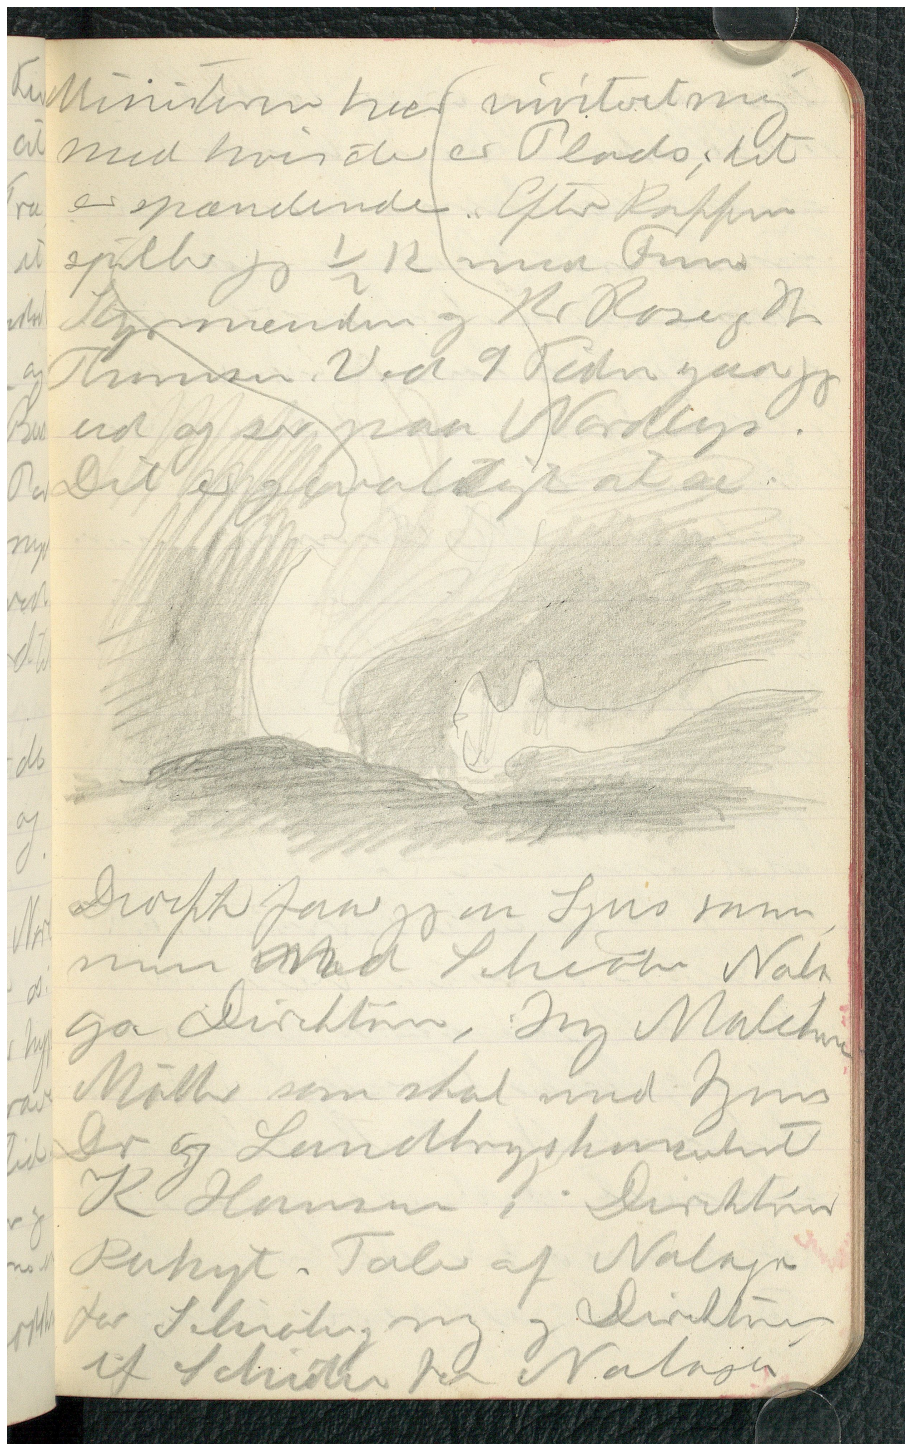 Ministeren har inviteret mig
med hvis der er Plads, det
er spændende. Efter Kaffen
spiller jeg 1/2 R med Fru
Styrmanden og Kr Rose og Hr
Thomsen. Ved 9 Tiden gaar jeg
ud og ser paa Nordlys.
Det er gevaldigt at se.
Derefter faar jeg en Sjus sam
men med Schiøtte Nala
ga Direktøren, Ing Malchow
Møller som skal med
Dr og Landbrugskonsulent
K Hansen i Direktørens
Rukyt. Taler af Nalaga
for Schiøtte, mig og Direktøren
af Schiøtte for Nalaga